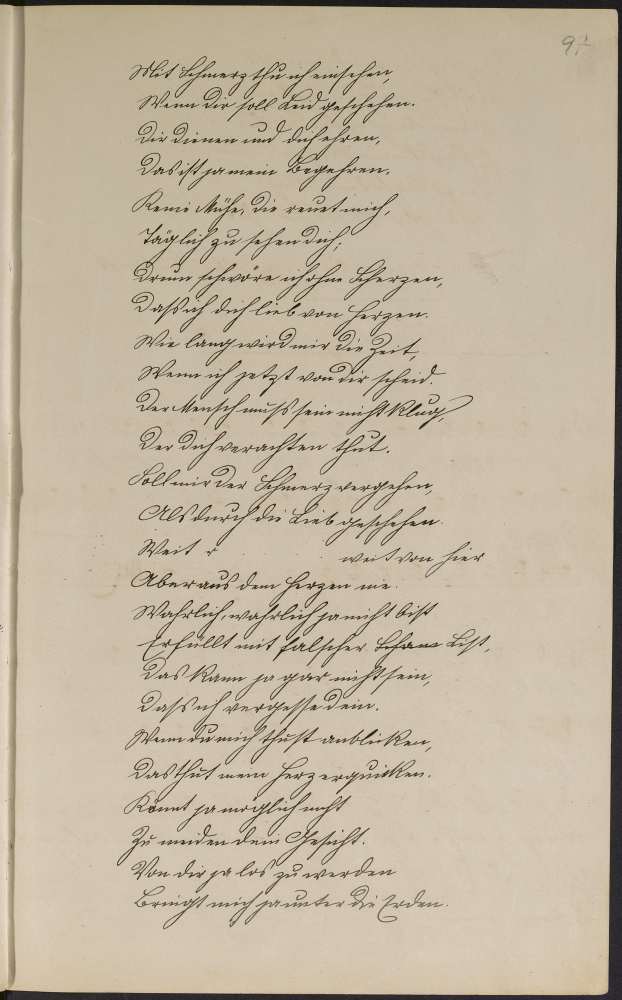 97
Mit Schmerz thu ich einsehen,
Wenn dir soll Leid geschehen.
Dir dienen und dich ehren,
Das ist ja mein Begehren.
Keine Mühe, die reuet mich,
Täglich zu sehen dich;
Drum schwöre ich ohne Scherzen,
Dass ich dich lieb von Herzen.
Wie lang wird mir die Zeit,
Wenn ich jetzt von dir scheid.
Der Mensch muss sein nicht klug,
Der dich verachten thut.
Soll mir der Schmerz vergehen,
Als durch die Lieb geschehen.
Weit r weit von hier
Aber aus dem Herzen nie.
Wahrlich, wahrlich ja nicht bist
Erfüllt mit falscher List,
Das kann ja gar nicht sein,
Dass ich vergesse dein.
Wenn du mich thust anblicken,
Das thut mein Herz erquicken.
Könnt ja möglich nicht
Zu meiden dein Gesicht.
Von dir ja los zu werden
Bringt mich ja unter die Erden.